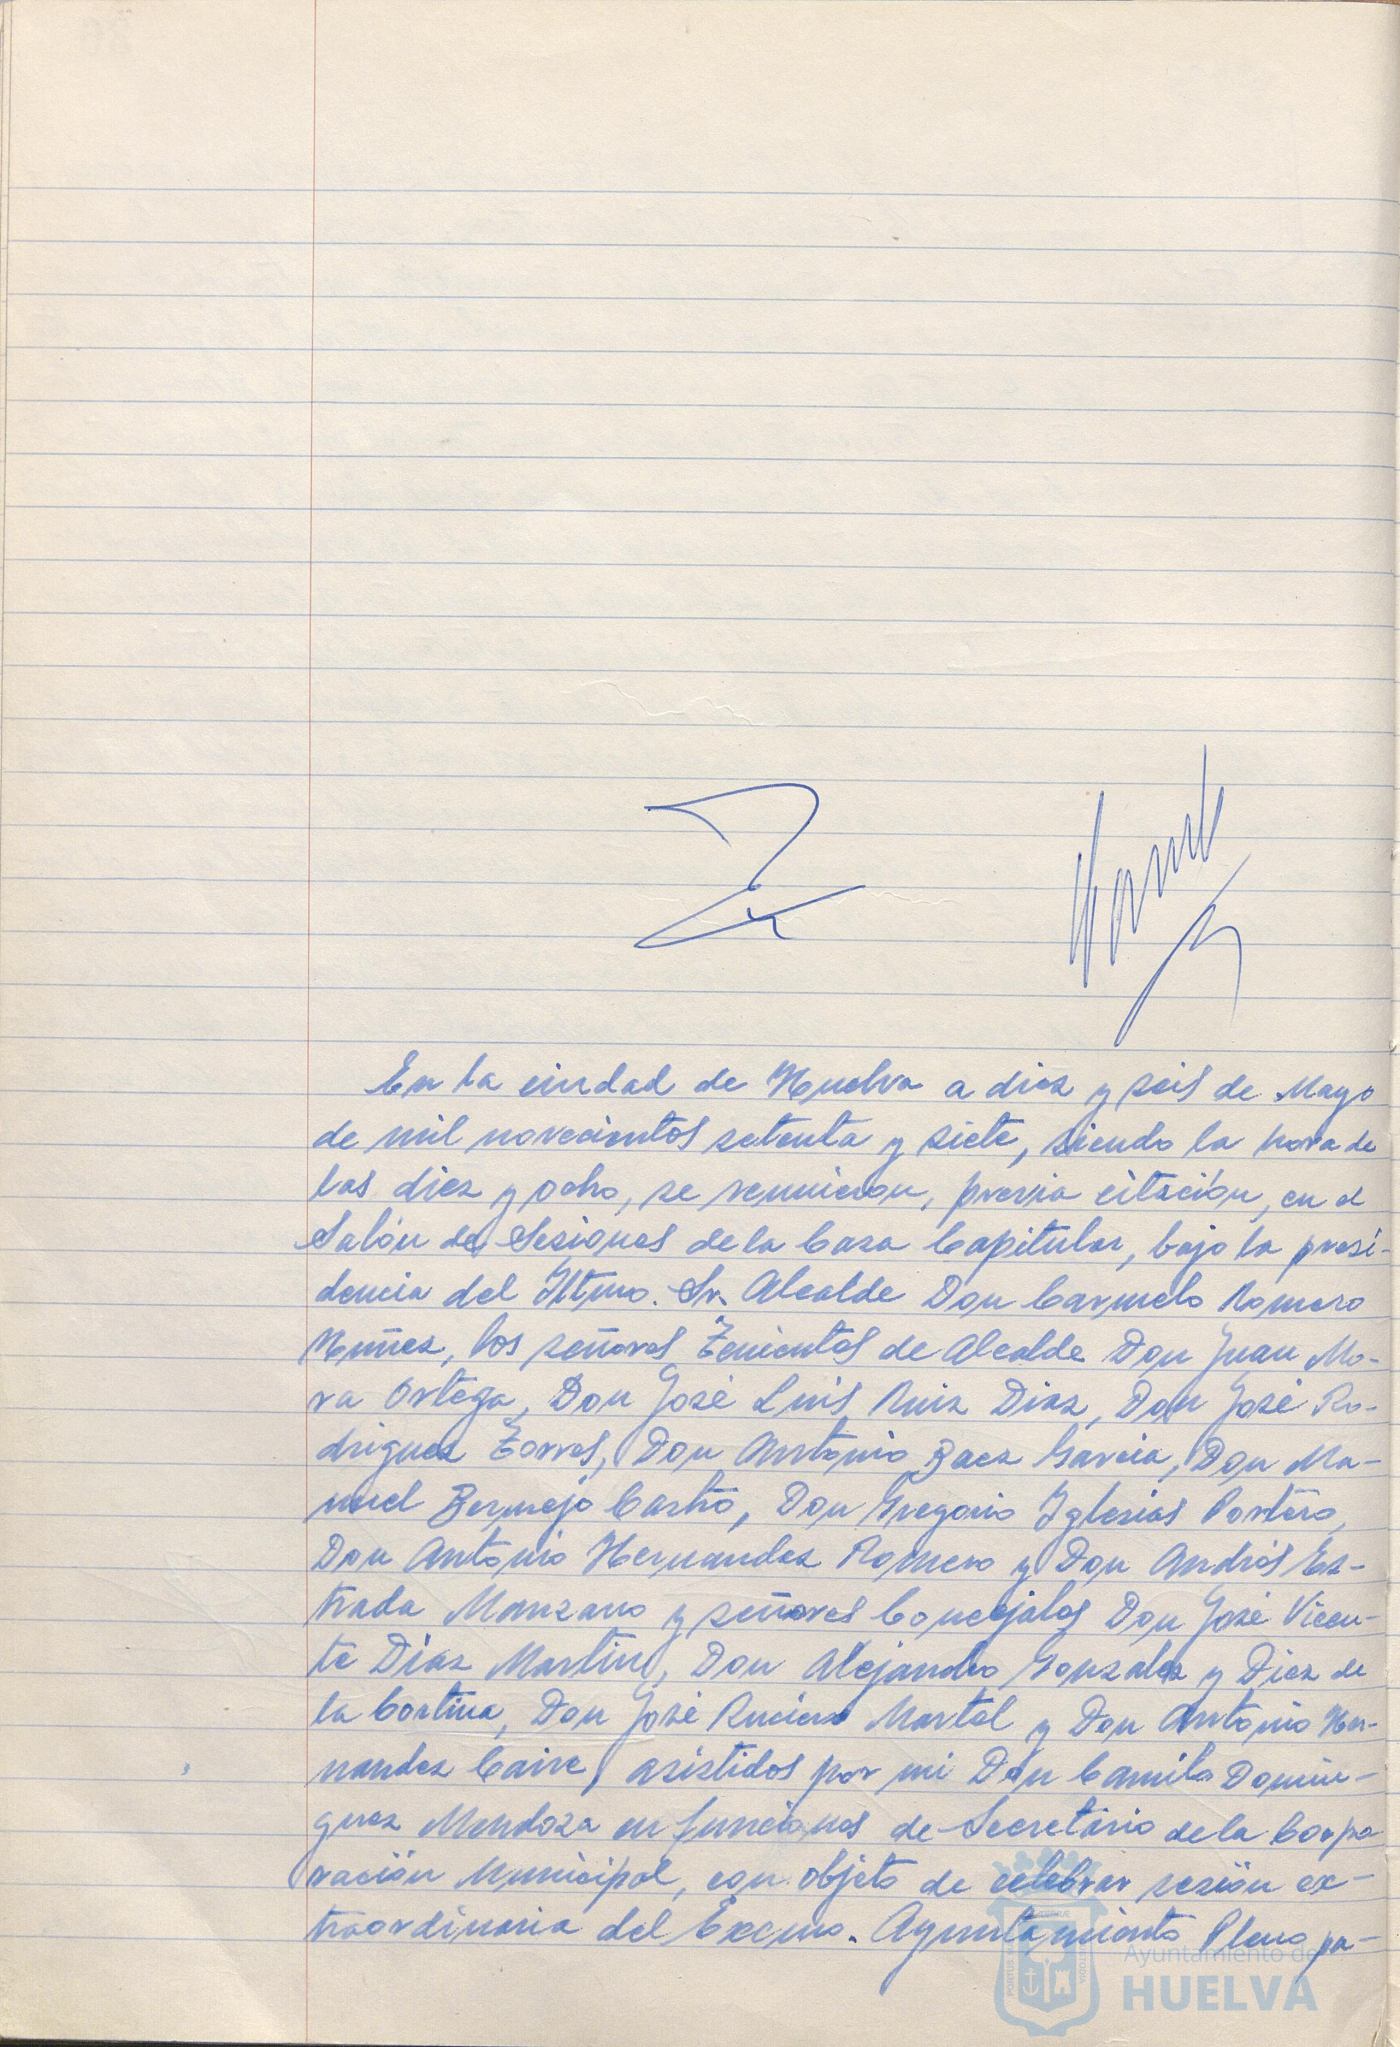 En la ciudad de Huelva a diez y seis de Mayo
de mil novecientos setenta y siete, siendo la hora de
las diez y ocho, se reunieron, previa citación, en el
Salón de Sesiones de la Casa Capitular, bajo la presi-
dencia del Iltmo. Sr. Alcalde Don Carmelo Romero
Nuñez, los señores Tenientes de Alcalde Don Juan Mo-
ra Ortega, Don José Luis Ruiz Diaz, Don José Ro-
driguez Torres, Don Antonio Baez Garcia, Don Ma-
nuel Bermejo Castro, Don Gregorio Iglesias Portero,
Don Antonio Hernandez Romero y Don Andrés Es-
trada Manzano y señores Concejales Don José Vicen-
te Díaz Martin, Don Alejandro Gonzalez y Diez de
la Cortina, Don José Ruciero Martel y Don Antonio Her-
nandez Caire, asistidos por mi Don Camilo Domin-
guez Mendoza en funciones de Secretario de la Corpo
ración Municipal, con objeto de celebrar sesión ex-
traordinaria del Excmo. Ayuntamiento Pleno pa-
Ayuntamiento de
HUELVA